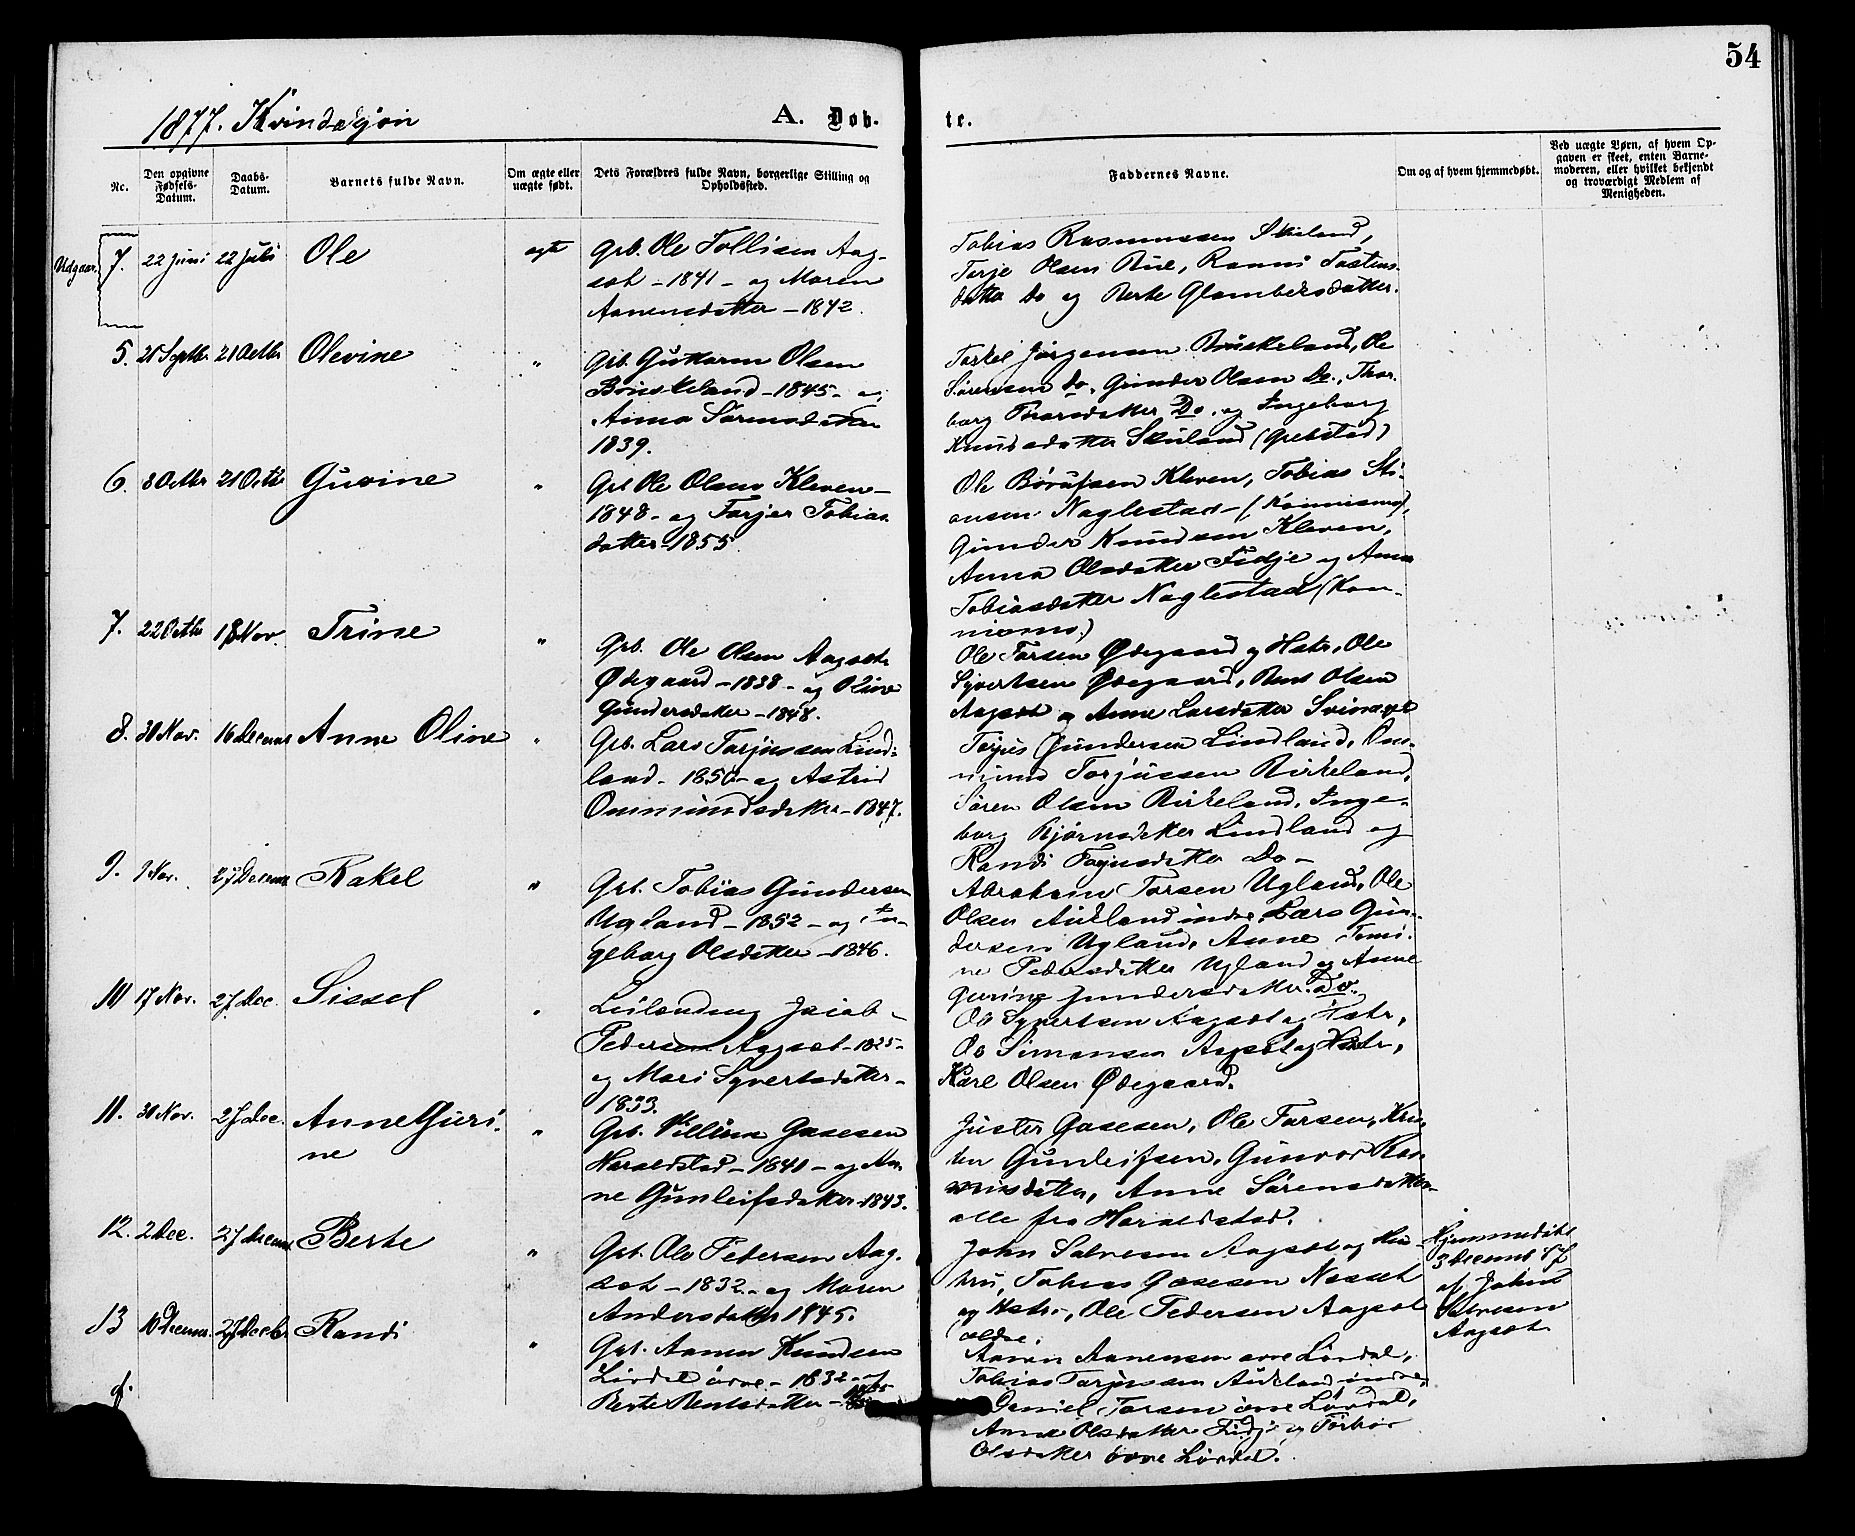 54
1877. Kvindekjøn
A. Døb- te.
No.
Den opgivne Fødsels-Datum.
Daabs-Datum.
Barnets fulde Navn.
Om ægte eller uægte født.
Dets Forældres fulde Navn, borgerlige Stilling og Opholdssted.
Faddernes Navne.
Om og af hvem hjemmedøbt.
Ved uægte Børn, af hvem Opgaven er skeet, enten Barnemoderen, eller hvilket bekjendt og troværdigt Medlem af Menigheden.
Udgaar. 7. 22 Juni 22 Juli Ole ægte
Grb. Ole Tollisen Aag-
sæt - 1841 - og Maren
Aanensdatter - 1842.
Tobias Rasmussen Skeland,
Terje Olsen Bue, Ranni Tostens-
datter Do og Berte Glambersdatter.
5. 21 Octbr Olevine "
Grb. Guttorm Olsen
Bruskeland - 1845 - og
Anna Sørensdatter
1839.
Torkel Jørgensen Bruskeland, Ole
Sørensen do, Gunder Olsen Do., Thor-
borg Do. og Ingeborg
Knudsdatter Skeland (Grebstad)
6. 8 Octbr 21 Octbr Guvine "
Grb Ole Olsen Kleven -
1848 - og Torjer Tobias-
datter 1855.
Ole Kleven, Tobias Sti-
ansen Naglestad - (Konnismo),
Gunder Knudsen Kleven,
Anna Olsdatter Fidje og Anna
Tobiasdatter Naglestad (Kon-
nismo.)
7. 22 Octbr 18 Nov. Trine "
Grb. Ole Olsen Aagsæt
Ødegaard - 1838 - og Oline
Gundersdatter - 1848.
Ole Tarsen Ødegaard og Hstr, Ole
Syvertsen Ødegaard, Bent Olsen
Aagsæt og Anne Larsdatter
8. 30 Nov. 16 Decembr Anne Oline "
Grb. Lars Torjussen Lind-
land - 1850 - og Astrid
Ommundsdatter - 1847.
Torjus Gundersen Lindland, Om-
mund Torjussen Birkeland,
Søren Olsen Birkeland, Inge-
borg Bjørnsdatter Lindland og
Randi Do -
9. 9 Nov. 27 Decembr Rakel "
Grb. Tobias Gundersen
Ugland - 1852 - og In-
geborg Olsdatter - 1846.
Abraham Tarsen Ugland, Ole
Olsen Aukland indre Lars Gun-
dersen Ugland, Anne Tomi-
ne Pedersdatter Ugland og Anne
Gurine Gundersdatter. Do.
10 17 Nov. 27 Dec. Sissel "
Leilending Jacob
Pedersen Aagsæt - 1825 -
og Mari Syvertsdatter -
1833.
Ole Syvertsen Aagsæt og Hstr,
Ole Simonsen Aagsæt og Hstr,
Karl Olsen Ødegaard.
11. 30 Nov. 27 Dec. Anne Guri-
ne "
Grb. Villum Gasesen
Haraldstad - 1840 - og An-
ne Gunleifsdatter - 1843.
Juster Gasesen, Ole Tarsen, Kri-
Gunleifsen, Gunvor
Anne Sørensdatter
alle fra Haraldstad.
12. 2 Dec. 27 Decembr Berte "
Grb. Ole Pedersen Aag-
sæt - 1832 - og Maren
Andersdatter 1845.
John Salvesen Aagsæt og Hu-
stru, Tobias Gasesen Nesset
og Hstr -, Ole Pedersen Aagsæt
ældre.
Hjemmedøbt
3 Decembr 77
af John
Salvesen
Aagsæt
13 10 Decembr. 27 Decbr. Randi "
Grb. Aanen Knudsen
Lindal øvre - 1832 - og
Berte Bentsdatter -
Aanen Aanensen øvre Løvdal,
Tobias Torjussen Aukland indre,
Daniel Tarsen øvre Løvdal,
Anne Olsdatter Fidje og Torbor
Olsdatter øvre Løvdal.